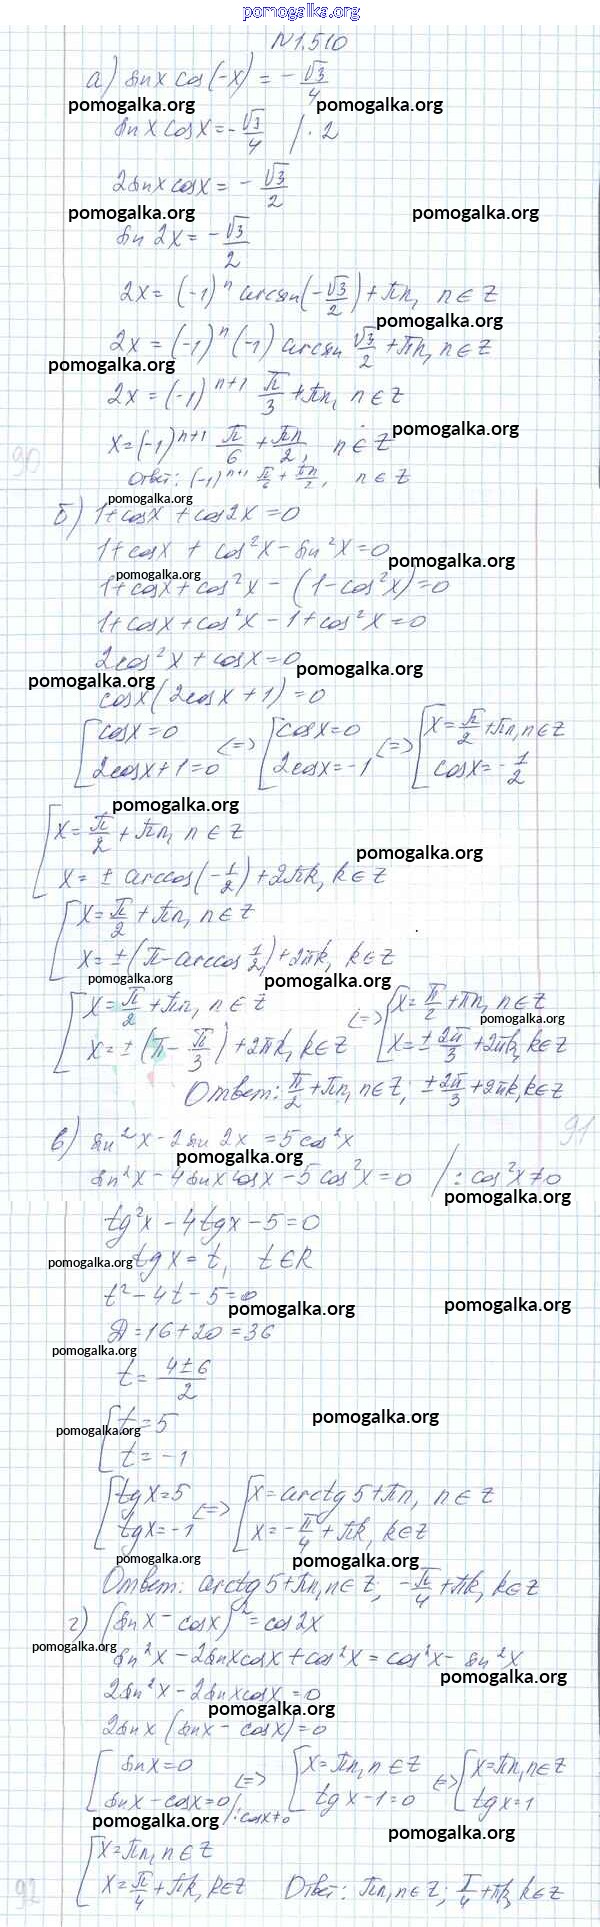 pomogalka.org
N1.510
а) sin x cos (-x) = - √3/4
pomogalka.org pomogalka.org
sin x cos x = - √3/4 / · 2
2 sin x cos x = - √3/2
pomogalka.org pomogalka.org
sin 2x = - √3/2
2x = (-1)^n arcsin(- √3/2) + πn, n ∈ Z
pomogalka.org
2x = (-1)^n (-1) arcsin √3/2 + πn, n ∈ Z
pomogalka.org
2x = (-1)^(n+1) π/3 + πn, n ∈ Z
pomogalka.org
x = (-1)^(n+1) π/6 + πn/2, n ∈ Z
90
Ответ: (-1)^(n+1) π/6 + πn/2, n ∈ Z
pomogalka.org
б) 1 + cos x + cos 2x = 0
1 + cos x + cos²x - sin²x = 0
pomogalka.org
pomogalka.org
1 + cos x + cos²x - (1 - cos²x) = 0
1 + cos x + cos²x - 1 + cos²x = 0
2cos²x + cos x = 0
pomogalka.org
pomogalka.org
cos x (2cos x + 1) = 0
[ cos x = 0 <=> [ cos x = 0 <=> [ x = π/2 + πn, n ∈ Z
2cos x + 1 = 0 2cos x = -1 cos x = - 1/2
pomogalka.org
[ x = π/2 + πn, n ∈ Z
pomogalka.org
x = ± arccos(- 1/2) + 2πk, k ∈ Z
[ x = π/2 + πn, n ∈ Z
x = ± (π - arccos 1/2) + 2πk, k ∈ Z
pomogalka.org pomogalka.org
[ x = π/2 + πn, n ∈ Z <=> [ x = π/2 + πn, n ∈ Z
pomogalka.org
x = ± (π - π/3) + 2πk, k ∈ Z x = ± 2π/3 + 2πk, k ∈ Z
Ответ: π/2 + πn, n ∈ Z; ± 2π/3 + 2πk, k ∈ Z
91
в) sin²x - 2 sin 2x = 5cos²x
pomogalka.org
sin²x - 4 sin x cos x - 5 cos²x = 0 / : cos²x ≠ 0
pomogalka.org
tg²x - 4tg x - 5 = 0
pomogalka.org
tg x = t, t ∈ R
t² - 4t - 5 = 0
pomogalka.org pomogalka.org
Д = 16 + 20 = 36
pomogalka.org
t = 4 ± 6 / 2
[ t = 5
pomogalka.org
pomogalka.org
t = -1
[ tg x = 5 <=> [ x = arctg 5 + πn, n ∈ Z
tg x = -1 x = - π/4 + πk, k ∈ Z
pomogalka.org pomogalka.org
Ответ: arctg 5 + πn, n ∈ Z; - π/4 + πk, k ∈ Z
г) (sin x - cos x)² = cos 2x
pomogalka.org
sin²x - 2 sin x cos x + cos²x = cos²x - sin²x
pomogalka.org
2 sin²x - 2 sin x cos x = 0
pomogalka.org
2 sin x (sin x - cos x) = 0
[ sin x = 0 <=> [ x = πn, n ∈ Z <=> [ x = πn, n ∈ Z
sin x - cos x = 0 /: cos x ≠ 0 tg x - 1 = 0 tg x = 1
pomogalka.org
pomogalka.org
[ x = πn, n ∈ Z
x = π/4 + πk, k ∈ Z Ответ: πn, n ∈ Z; π/4 + πk, k ∈ Z
92